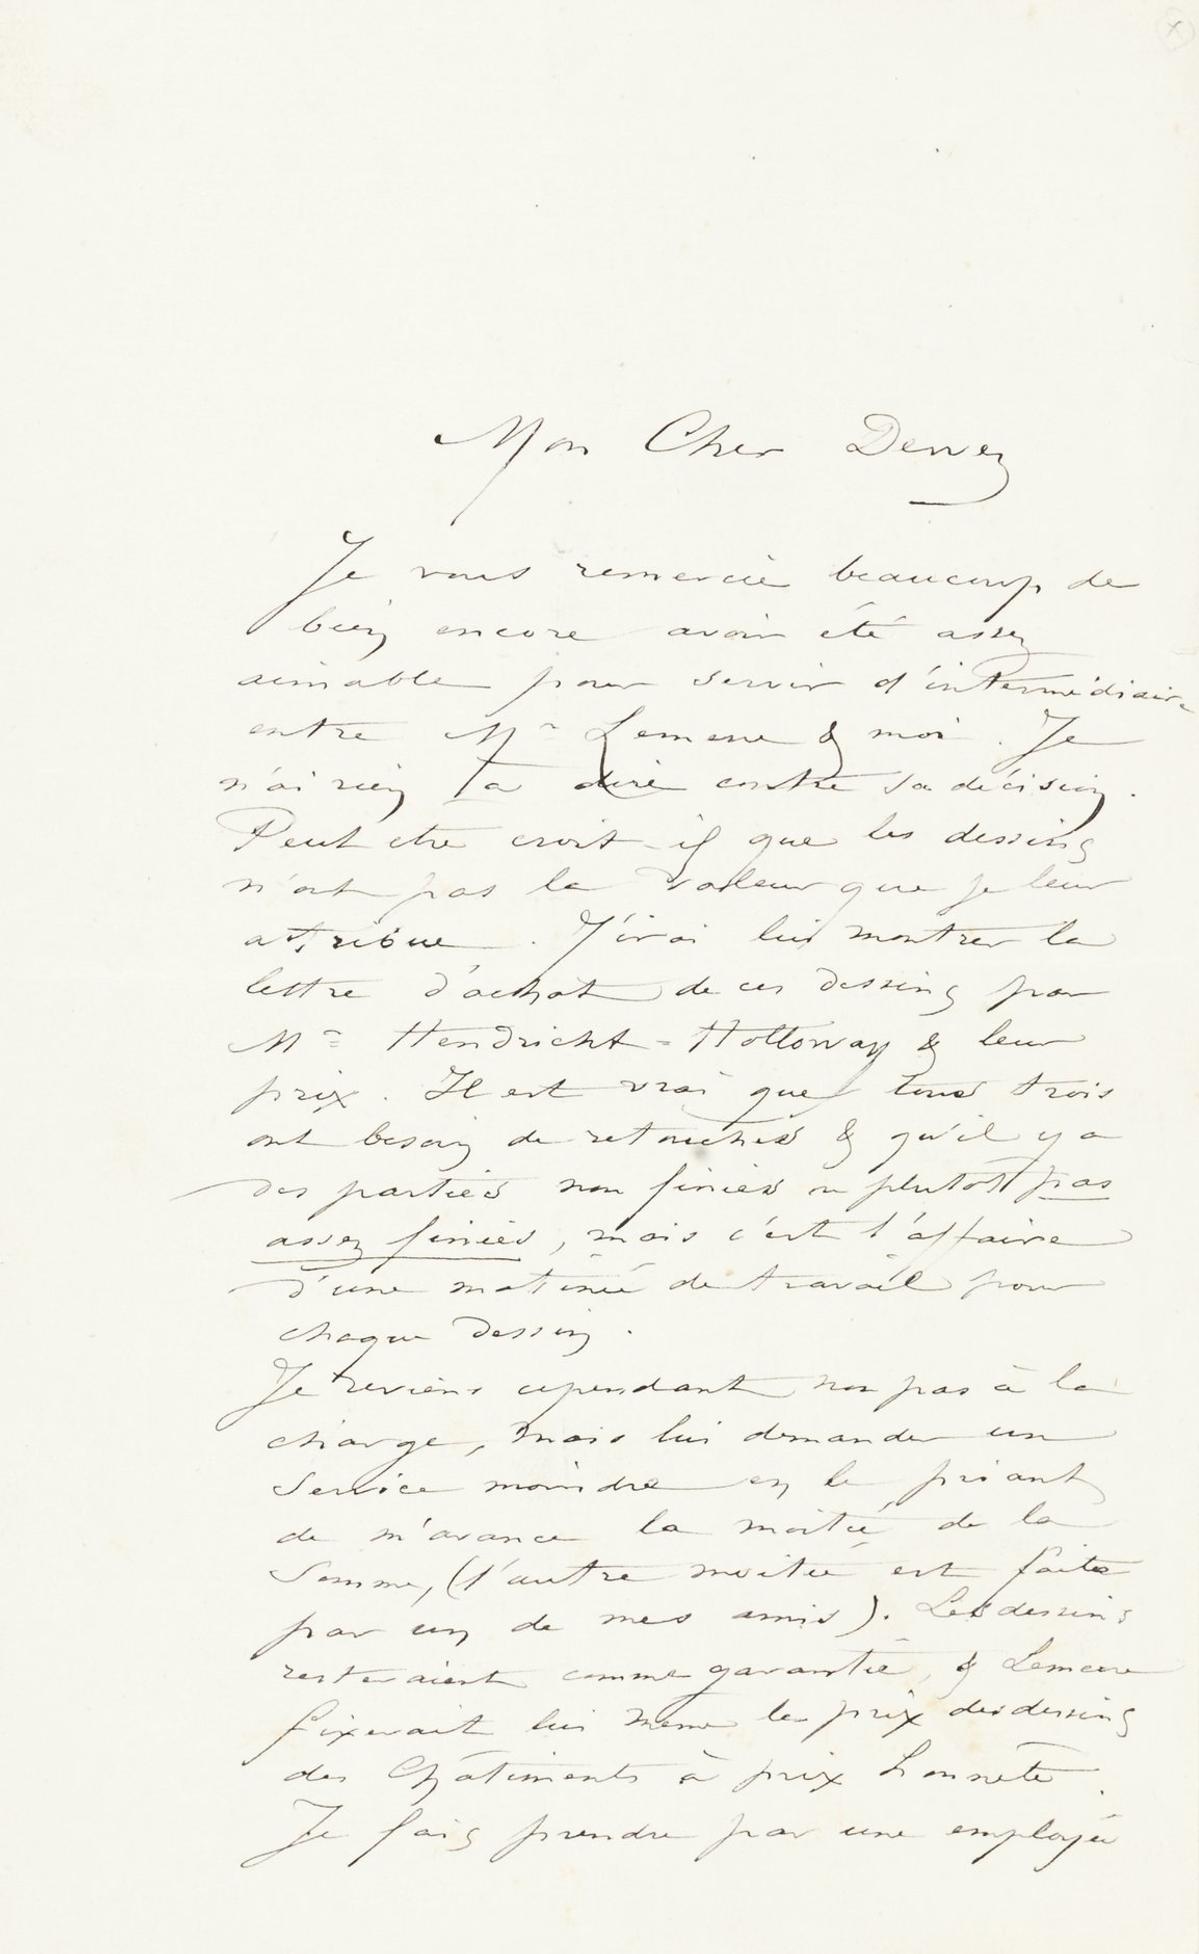 Mon Cher Dewez
Je vous remercie beaucoup de
bien encore avoir été assez
aimable pour servir d'intermédiaire
entre Mr Lemerre & moi. Je
n'ai rien à dire contre sa décision.
Peut etre croit-il que les dessins
n'ont pas la valeur que je leur
attribue. J'irai lui montrer la
lettre d'achat de ces dessins par
Mr Hendricht-Holloway & leur
prix. Il est vrai que tous trois
ont besoin de retouches & qu'il y a
des parties non finies ou plutôt pas
assez finies, mais c'est l'affaire
d'une matinée de travail pour
chaque dessin.
Je reviens cependant non pas à la
charge, mais lui demander un
service moindre en le priant
de m'avancer la moitié de la
somme, (l'autre moitié est faite
par un de mes amis). Les dessins
resteraient comme garantie, & Lemerre
fixerait lui meme le prix des dessins
des Châtiments à prix honnête.
Je fais prendre par une employée